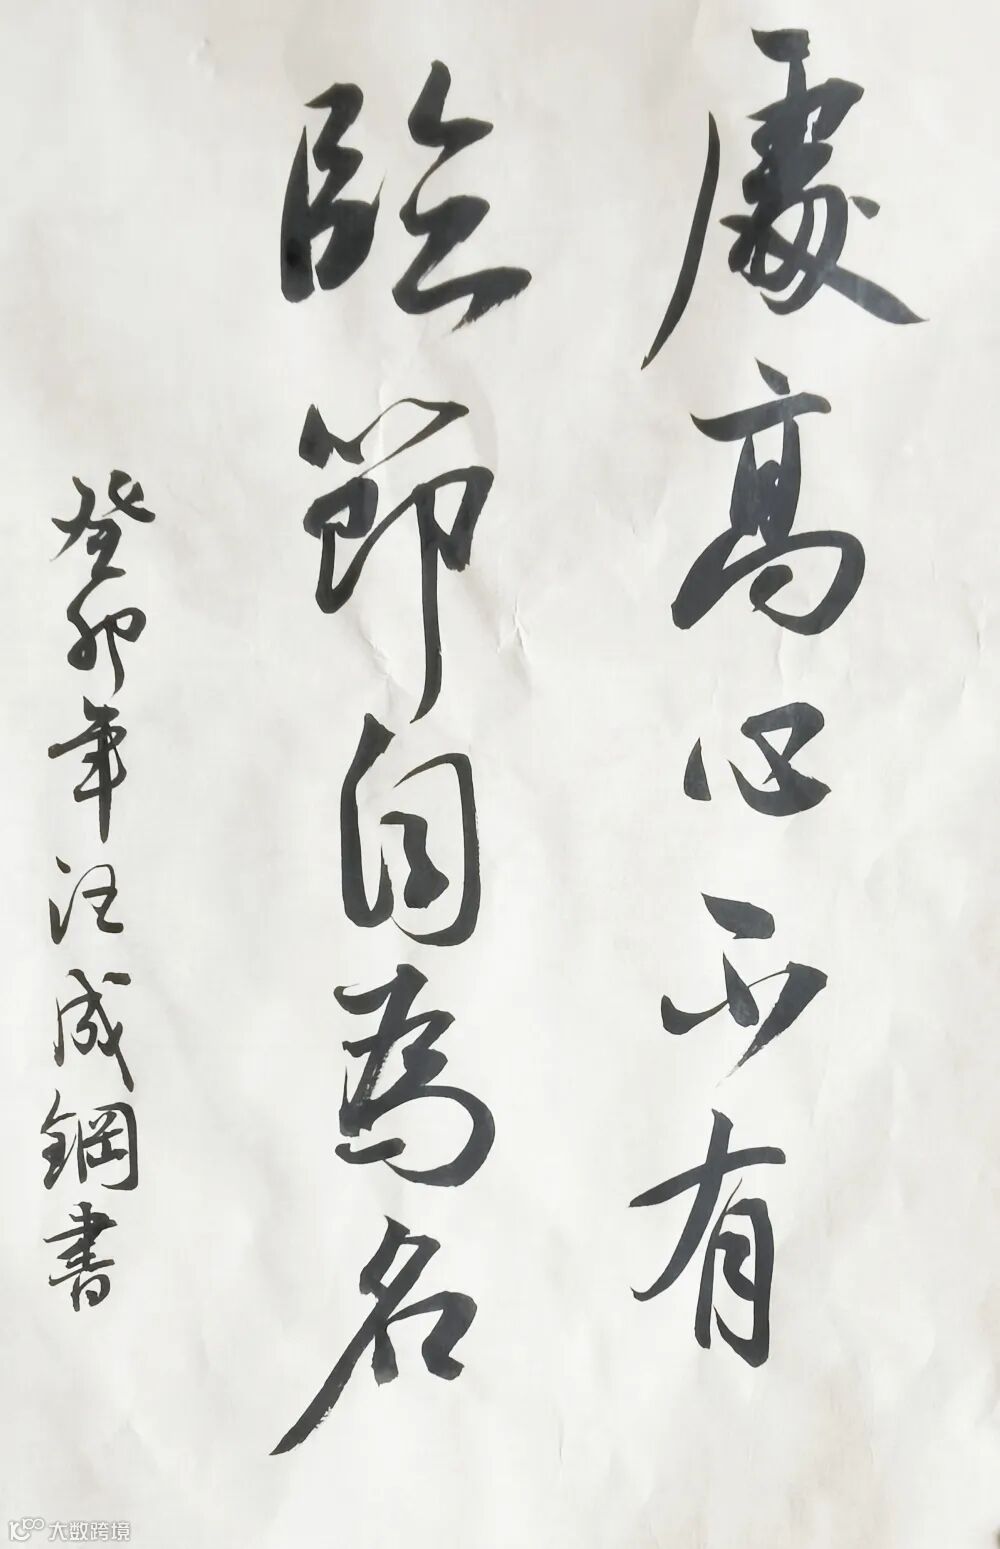 處高心不有
臨節自為名
癸卯年汪成鋼書
大数跨境